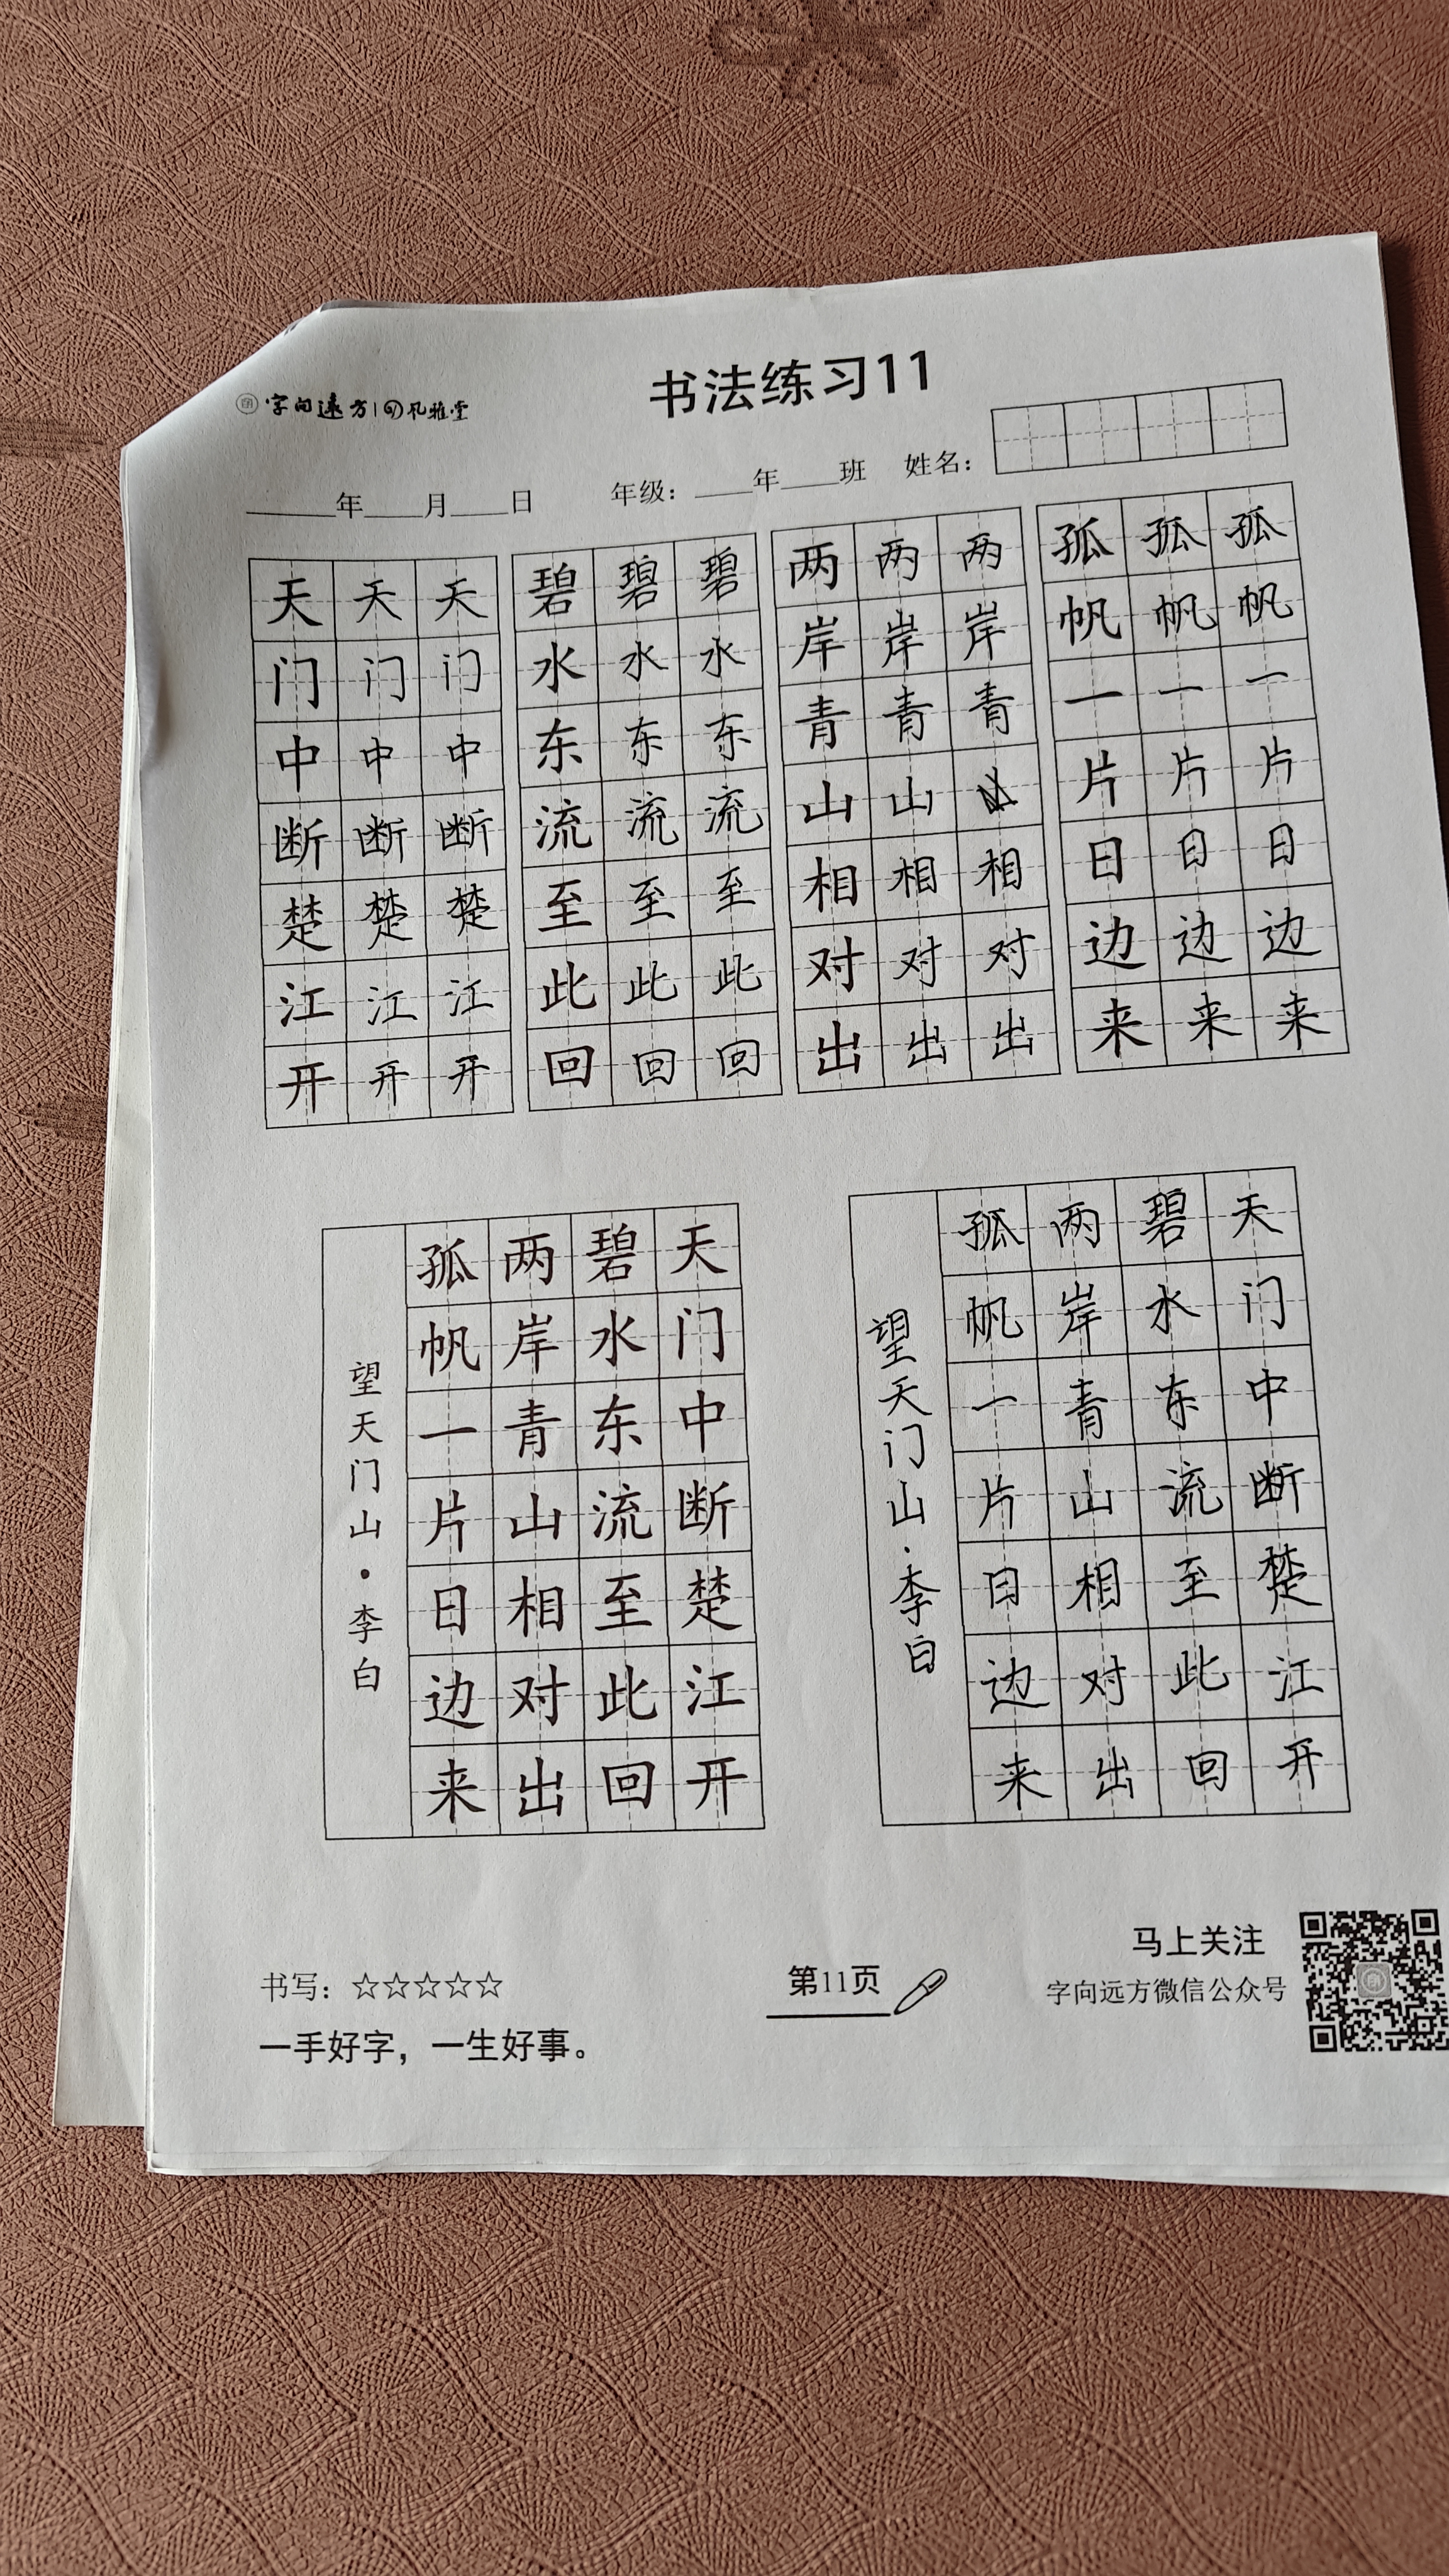 字向远方|风雅堂
书法练习11
____年____月____日 年级：____年____班 姓名：
天天天 碧碧碧 两两两 孤孤孤
门门门 水水水 岸岸岸 帆帆帆
中中中 东东东 青青青 一一一
断断断 流流流 山山 片片片
楚楚楚 至至至 相相相 日日日
江江江 此此此 对对对 边边边
开开开 回回回 出出出 来来来
天门中断楚江开
碧水东流至此回
两岸青山相对出
孤帆一片日边来
望天门山·李白
天门中断楚江开
碧水东流至此回
两岸青山相对出
孤帆一片日边来
望天门山·李白
书写：☆☆☆☆☆
一手好字，一生好事。
第11页
马上关注
字向远方微信公众号